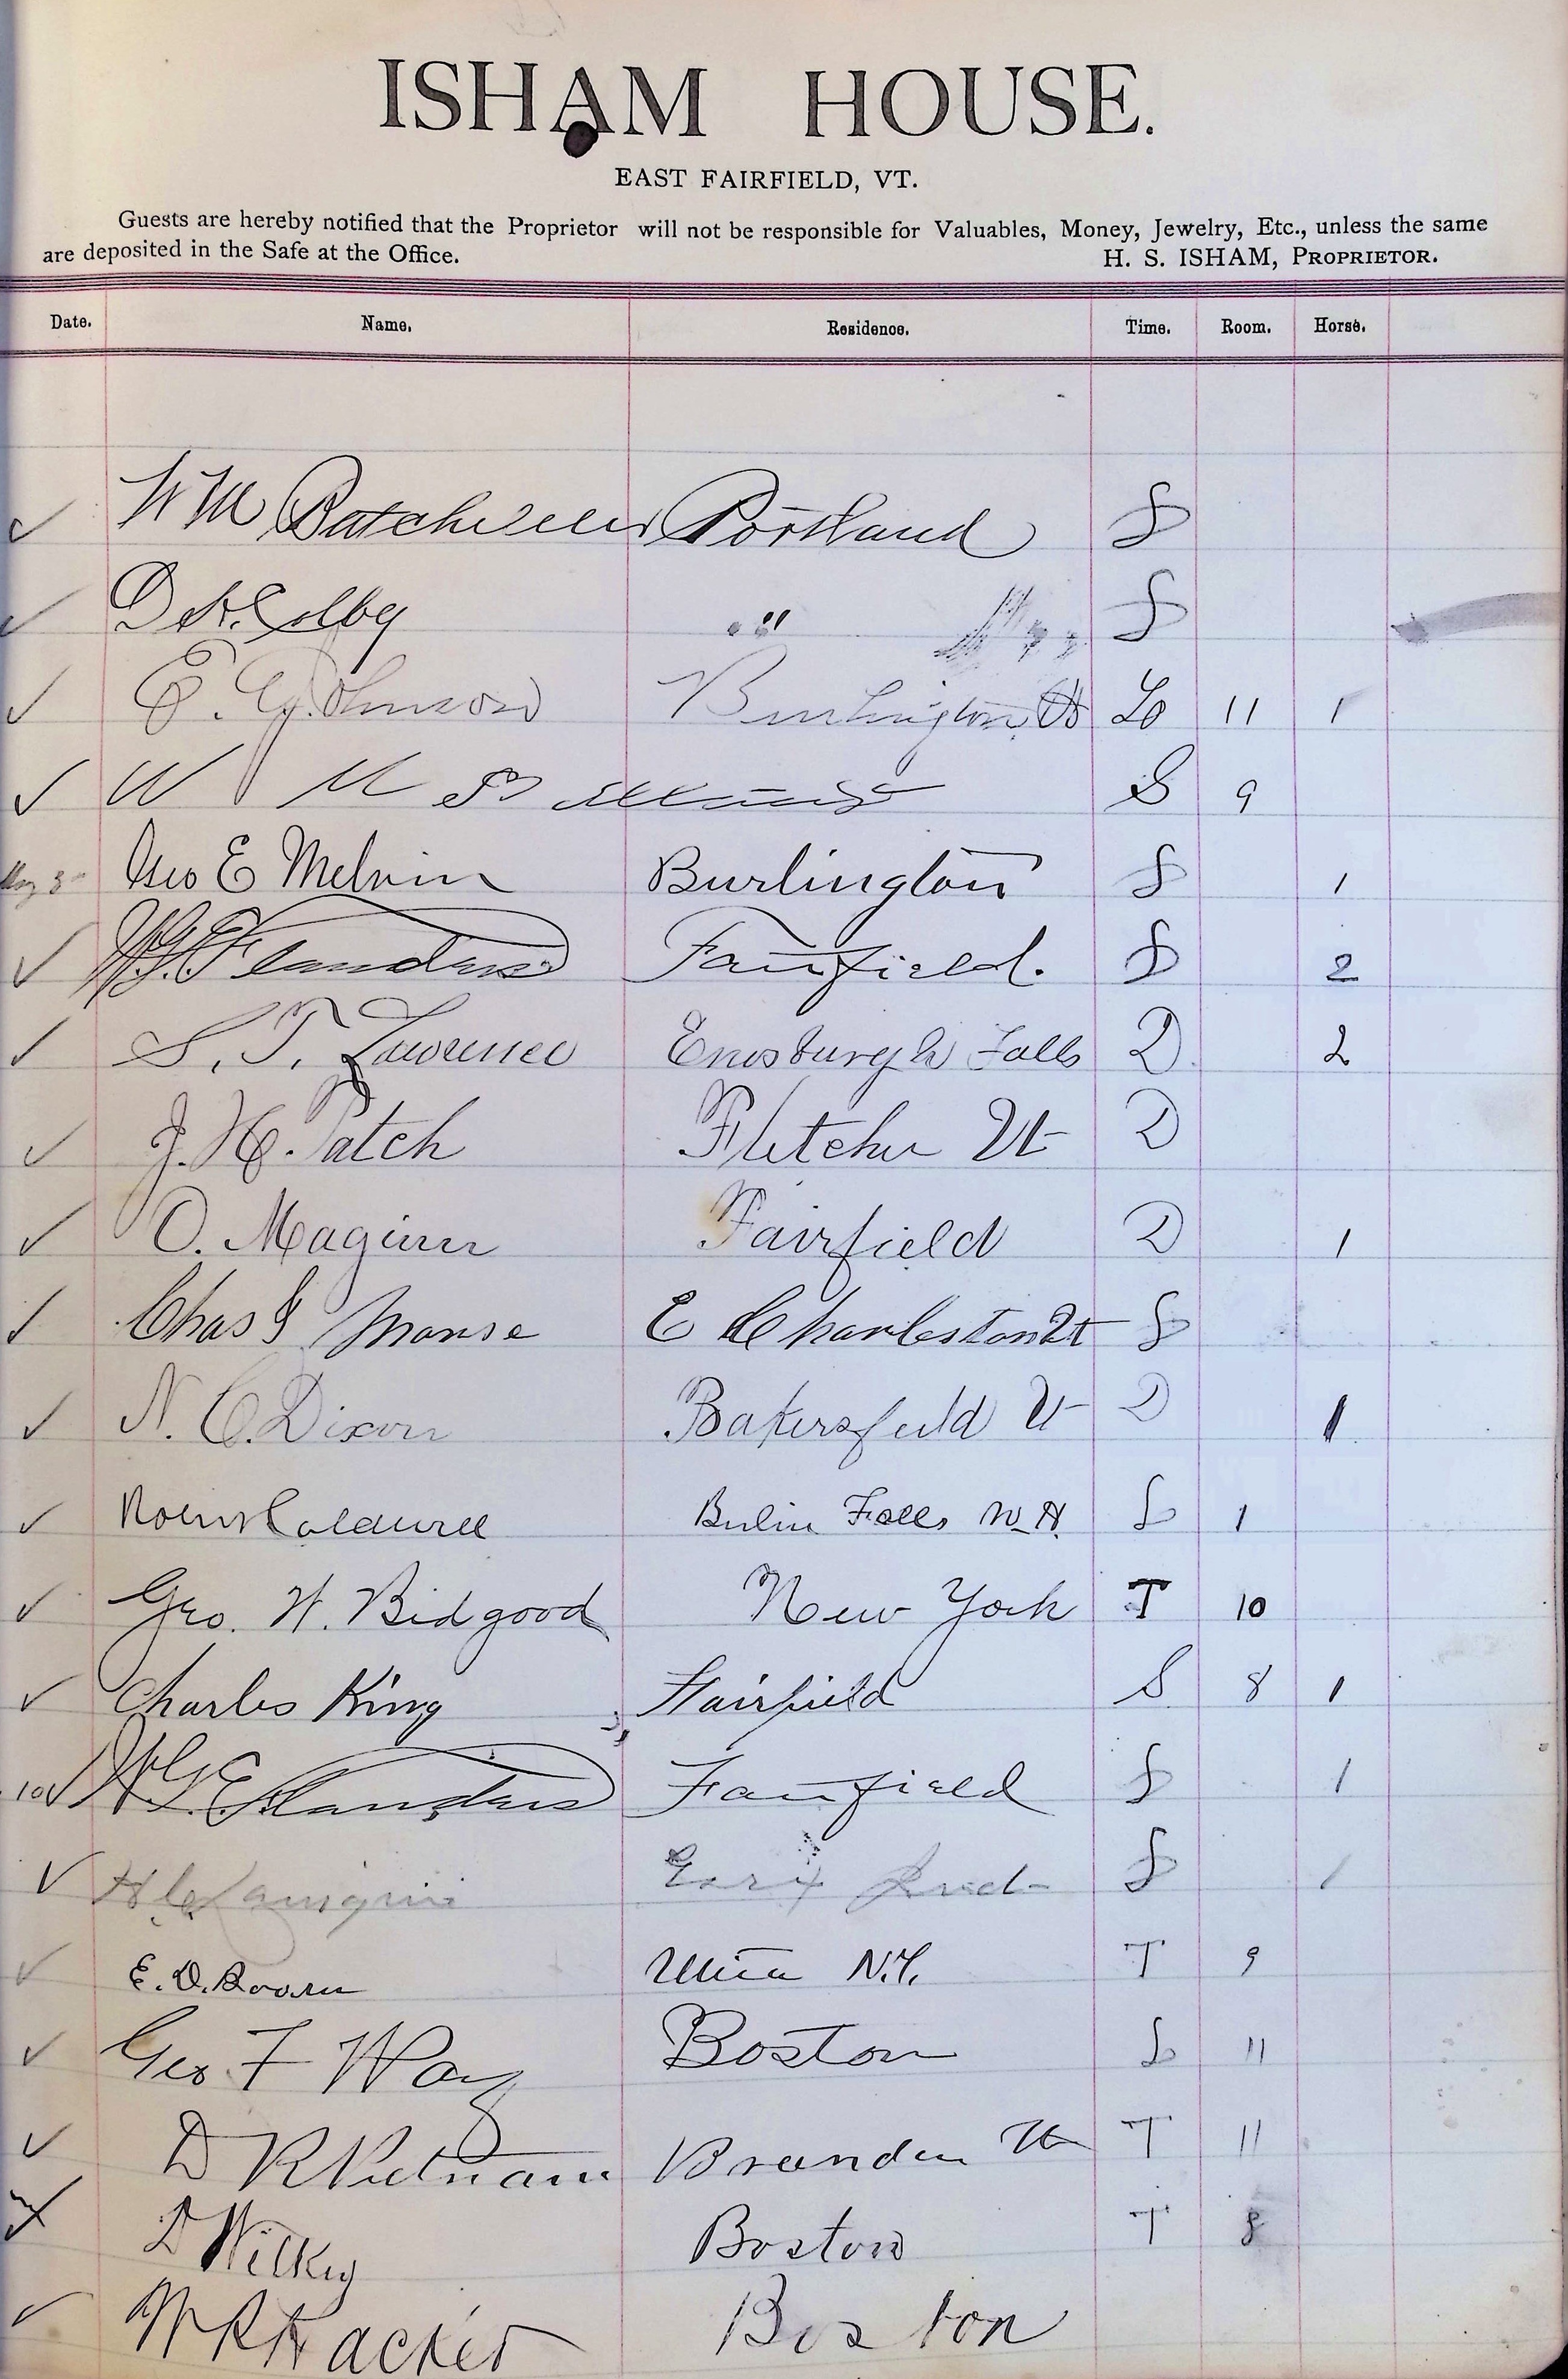 ISHAM HOUSE.
EAST FAIRFIELD, VT.
Guests are hereby notified that the Proprietor will not be responsible for Valuables, Money, Jewelry, Etc., unless the same
are deposited in the Safe at the Office. H. S. ISHAM, PROPRIETOR.
Date. Name. Residence. Time. Room. Horse.
✓ W M Batchelder Portland S
✓ D H. Colby " S
✓ E. G. Johnson Burlington Vt Lo 11 1
✓ W M S 9
Geo E Melvin Burlington S 1
✓ W. G. Flanders Fairfield. S 2
✓ S. T. Lawrence Enosburgh Falls D 2
✓ J. H. Patch Fletcher Vt D
✓ O. Maginn Fairfield D 1
✓ Chas J Morse E Charleston Vt S
✓ N. C. Dixon Bakersfield Vt D 1
✓ Caldwell Berlin Falls N.H. L 1
✓ Geo. W. Bidgood New York T 10
✓ Charles King Fairfield S 8 1
10 ✓ Flanders Fairfield S 1
✓ S 1
✓ E. D. Utica N.Y. T 9
✓ Geo F Way Boston L 11
✓ D R Putnam Brandon Vt T 11
D Wilky Boston T 8
✓ W R Hacker Boston